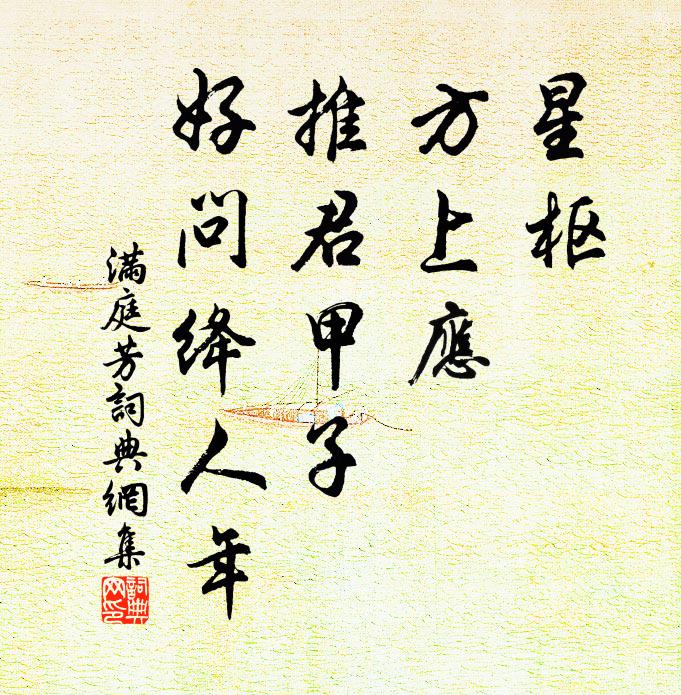 星枢
方上應
推君甲子
好問絳人年
滿庭芳詞典網集
詞典
网印